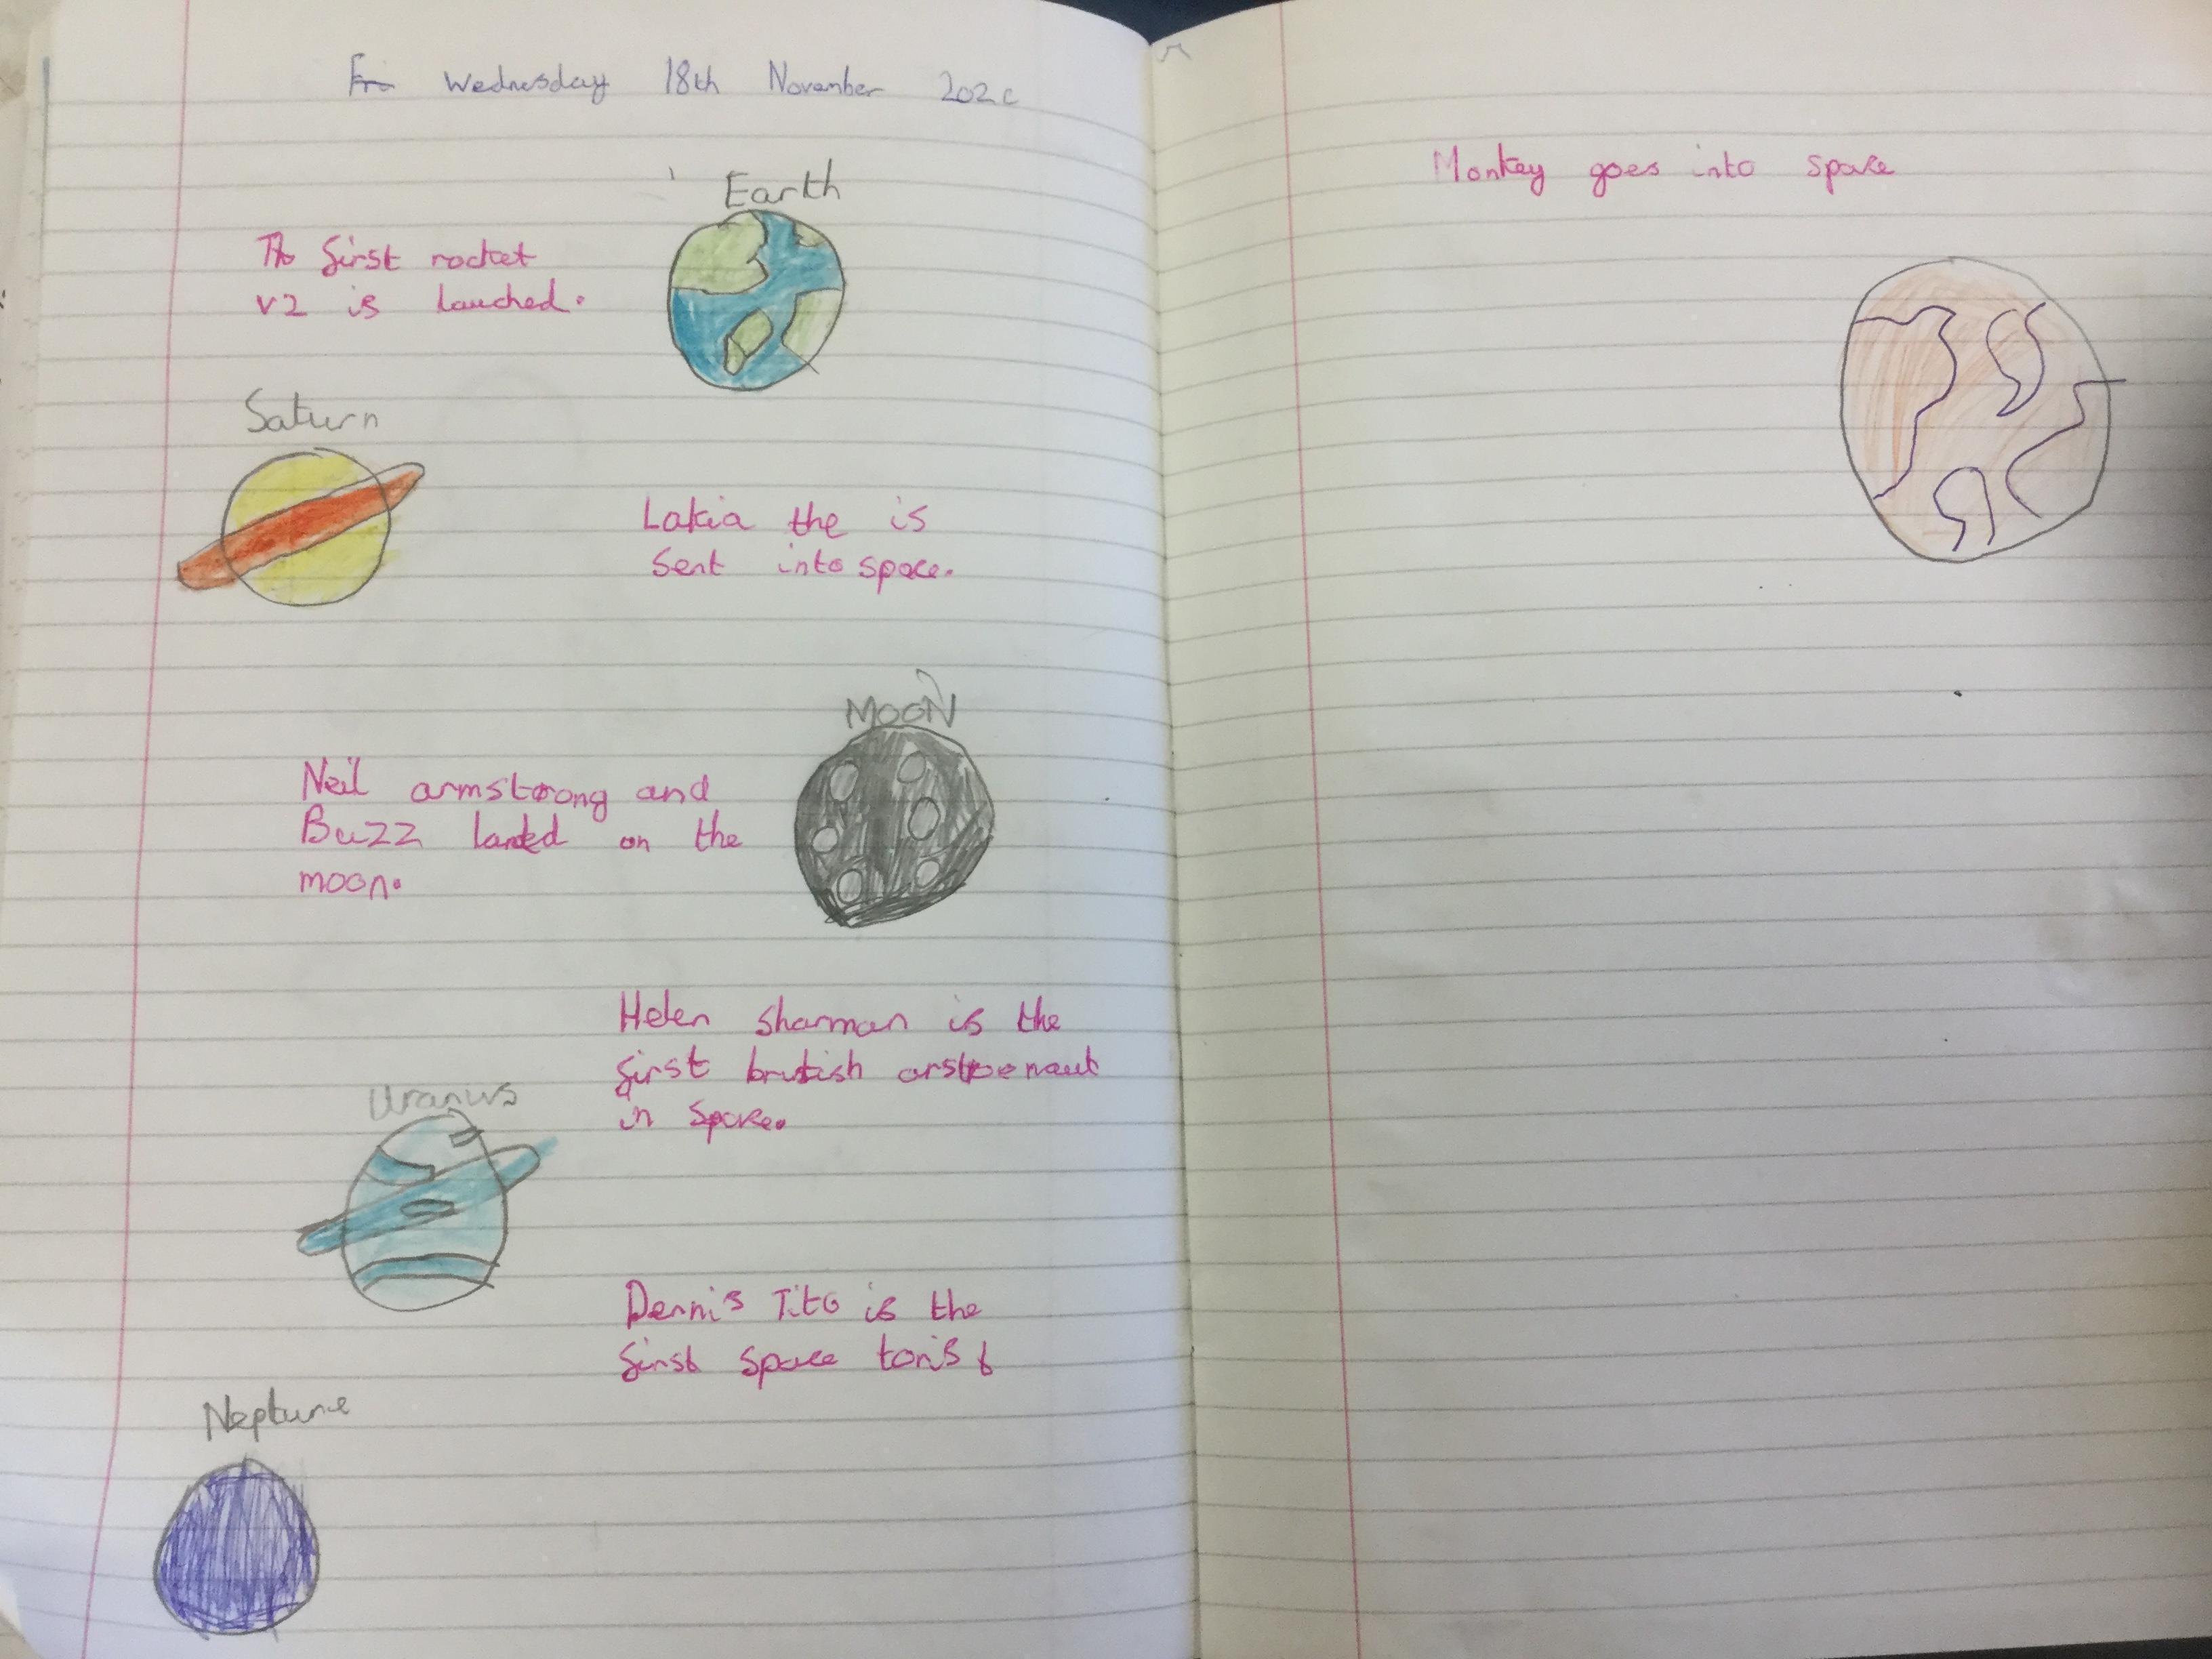 Fri Wednesday 18th November 202c
Earth
The first rocket
V2 is lauched.
Saturn
Lakia the is
sent into space.
MOON
Neil armstrong and
Buzz landed on the
moon.
Helen Sharman is the
first brutish arstoenaut
in space.
Uranus
Dennis Tito is the
first space torist
Neptune
Monkey goes into space